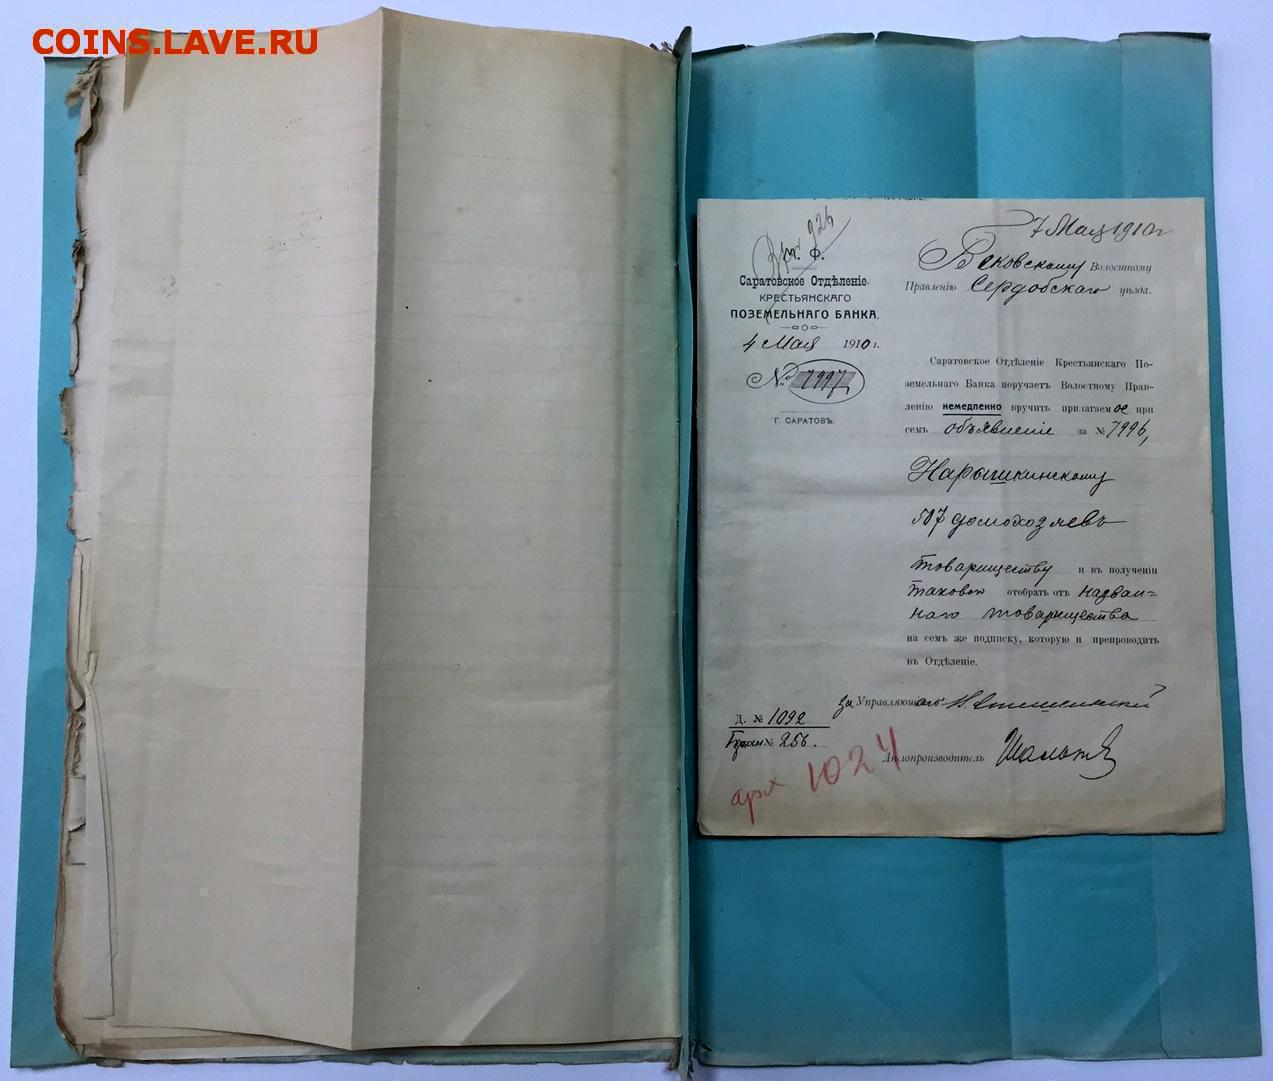 COINS.LAVE.RU
7 Мая 1910 г
926
М. Ф.
Саратовское Отдѣленіе
КРЕСТЬЯНСКАГО
ПОЗЕМЕЛЬНАГО БАНКА.
4 Мая 1910 г.
№ 7997
Г. САРАТОВЪ.
Бековскому Волостному
Правленію Сердобскаго уѣзда.
Саратовское Отдѣленіе Крестьянскаго По-
земельнаго Банка поручаетъ Волостному Прав-
ленію немедленно вручить прилагаемое при
семъ объявленіе за № 7996,
Нарышкинскому
507 домохозяевъ
товариществу и въ полученіи
таковое отобрать отъ назван-
наго товарищества
на семъ же подписку, которую и препроводить
въ Отдѣленіе.
за Управляющаго
Д. № 1092
№ 256.
Дѣлопроизводитель
арх 1024